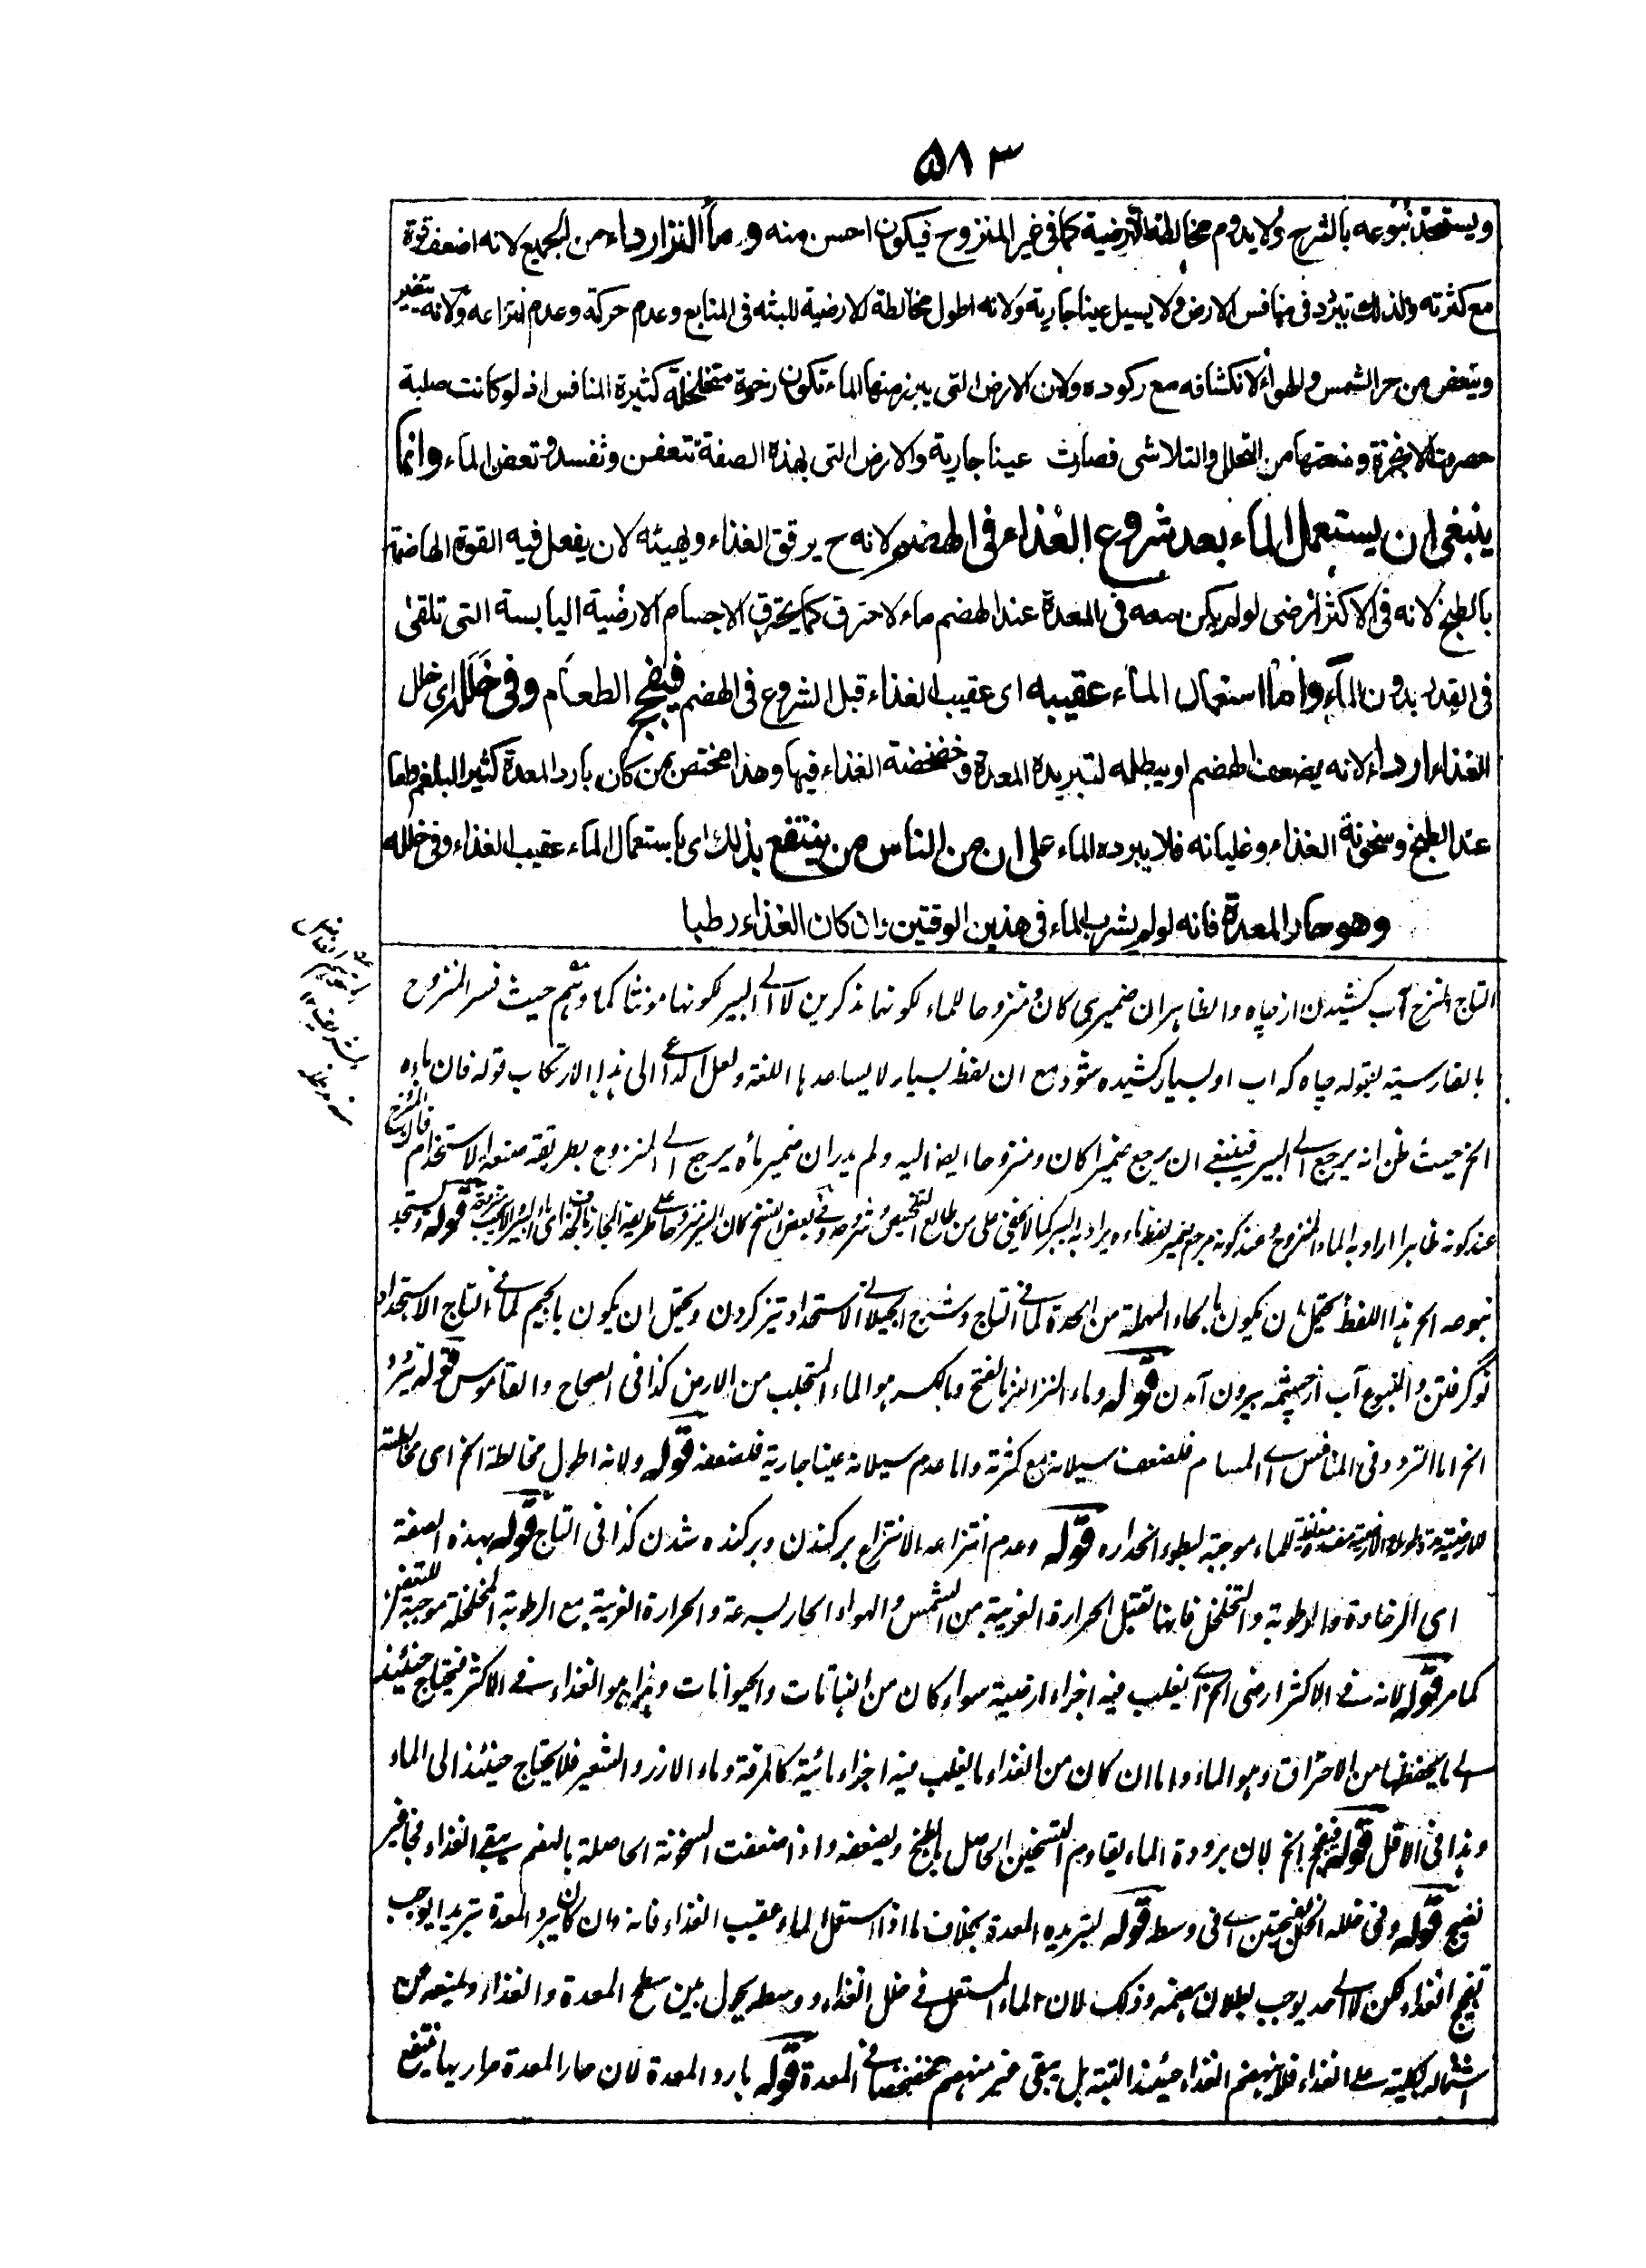 ۵۸۳
ويستحد نبوعه بالنزح ولا يدوم مخالطة الارضية كما فى غير المنزوح فيكون احسن منه وماء النز اردأ من الجميع لانه اضعف قوة
مع كثرته ولذلك تبرد فى منافس الارض ولا يسيل عينا جارية ولانه اطول مخالطة للارضية للبثه فى المنابع وعدم حركة وعدم انتزاعه ولانه يتغير
ويتعفن من حر الشمس والهواء لانكشافه مع ركوده ولان الارض التى يبرز منها الماء تكون رخوة متخلخلة كثيرة المنافس اذ لو كانت صلبة
حصرت الابخرة ومنعتها من التحلل والتلاشى فصارت عينا جارية والارض التى بهذه الصفة تتعفن وتفسد وتعفن الماء وانما
ينبغى ان يستعمل الماء بعد شروع الغذاء فى الهضم لانه ح يرقق الغذاء ويهيئه لان يفعل فيه القوة الهاضمة
بالطبخ لانه فى الاكثر ارضى لو لم يكن معه فى المعدة عند الهضم ماء لاحترق كما يحترق الاجسام الارضية اليابسة التى تلقى
فى القدر بدون الماء واما استعمال الماء عقيبه اى عقيب الغذاء قبل الشروع فى الهضم فيفج الطعام وفى خلله اى خلل
الغذاء اردأ لانه يضعف الهضم او يبطله لتبريده المعدة وخضخضة الغذاء فيها وهذا مختص بمن كان بارد المعدة كثير البلغم واما
عند الطبخ وسخونة الغذاء وغليانه فلا يبرده الماء على ان من الناس من ينتفع بذلك اى باستعمال الماء عقيب الغذاء وفى خلله
وهو حار المعدة فانه لو لم يشرب الماء فى هذين الوقتين وان كان الغذاء رطبا
التاج النزح آب كشيدن از چاه والظاهر ان ضميرى كان ومنزوحا للماء لكونها مذكرين لا الى البير لكونها مونثا كما وهم حيث فسر المنزوح
بالفارسية بقوله چاه كه اب او بسيار كشيده شود مع ان لفظ بسيار لا يساعدها اللغة ولعل الداعى الى هذا الارتكاب قوله فان ماءه
الخ حيث ظن انه يرجع الى البير فينبغى ان يرجع ضمير كان ومنزوحا ايضا اليه ولم يدر ان ضمير ماءه يرجع الى المنزوح بطريقة صنعة الاستخدام
عند كونه ظاهرا اراد به الماء المنزوح وعند كونه مرجع ضمير لفظ ماءه يراد به البير كما لا يخفى على من طالع التلخيص وشروحه وفى بعض النسخ كان البير منزوحا على طريقة المجاز قوله ويستحد
نبوعه الخ هذا اللفظ يحتمل ان يكون بالحاء المهملة من الحدة كما فى التاج وشرح الجيلانى الاستحداد تيز كردن ويحتمل ان يكون بالجيم كما فى التاج الاستجداد
نو گرفتن والنبوع آب از چشمه بيرون آمدن قوله وماء النز النز بالفتح وبالكسر هو الماء المتحلب من الارض كذا فى الصحاح والقاموس قوله تبرد
الخ اما التردد فى المنافس اى المسام فلضعف سيلانه مع كثرته واما عدم سيلانه عينا جارية فلضعفه قوله ولانه اطول مخالطة الخ اى مخالطته
للماء موجبة لبطوء انحداره قوله وعدم انتزاعه الانتزاع بركندن وبركنده شدن كذا فى التاج قوله بهذه الصفة
اى الرخاوة والرطوبة والتخلخل فانها تقبل الحرارة الغريبة من الشمس والهواء الحار بسرعة والحرارة الغريبة مع الرطوبة المخلخلة موجبة للتعفن
كما مر قوله لانه فى الاكثر ارضى الخ اى يغلب فيه اجزاء ارضية سواء كان من النباتات والحيوانات وهذا هو الغذاء فى الاكثر فيحتاج حينئذ
الى ما يحفظها من الاحتراق وهو الماء واما ان كان من الغذاء ما يغلب فيه اجزاء مائية كالمرقة وماء الارز والشعير فلا يحتاج حينئذ الى الماء
وهذا فى الاقل قوله فيفج الخ لان برودة الماء يقاوم التسخين الحاصل بالطبخ ويضعفه واذا ضعفت السخونة الحاصلة بالهضم يبقى الغذاء فجا غير
نضيج قوله وفى خلله الخلل بفتحتين اى فى وسطه قوله لتبريده المعدة بخلاف ما اذا استعمل الماء عقيب الغذاء فانه وان كان يبرد المعدة تبريدا يوجب
تفجيج الغذاء لكن لا الى حد يوجب بطلان هضمه وذلك لان الماء المستعمل فى خلل الغذاء ووسطه يحول بين سطح المعدة والغذاء ويمنعه من
اشتماله بكليته على الغذاء فلا ينهضم الغذاء حينئذ البتة بل يبقى غير منهضم مخضخضا فى المعدة قوله بارد المعدة لان حار المعدة حاريها ينتفع